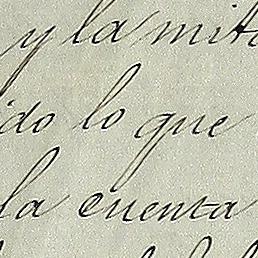 y la mita
ido lo que
la cuenta